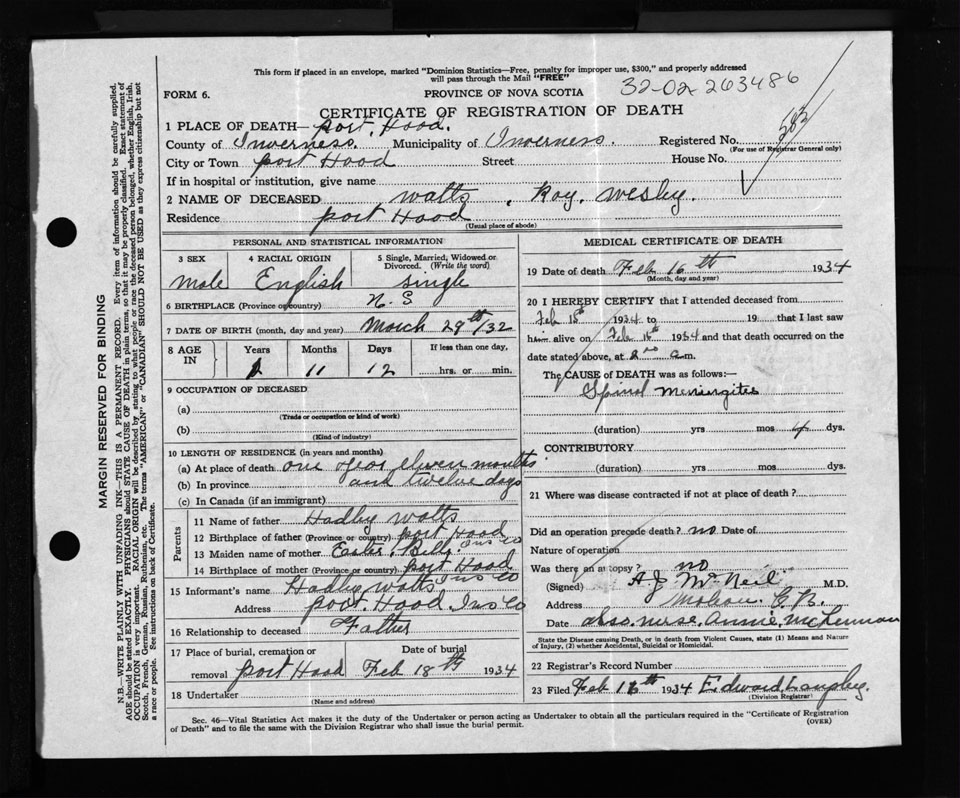 This form if placed in an envelope, marked "Dominion Statistics—Free, penalty for improper use, $300," and properly addressed
will pass through the Mail "FREE"
FORM 6.
PROVINCE OF NOVA SCOTIA
32-02 263486
CERTIFICATE OF REGISTRATION OF DEATH
1 PLACE OF DEATH— port Hood.
County of Inverness. Municipality of Inverness. Registered No.
(For use of Registrar General only)
City or Town port Hood Street House No.
If in hospital or institution, give name
2 NAME OF DECEASED watts, Roy, wesley.
Residence port Hood
(Usual place of abode)
PERSONAL AND STATISTICAL PARTICULARS
3 SEX 4 RACIAL ORIGIN 5 Single, Married, Widowed or Divorced. (Write the word)
male English single
6 BIRTHPLACE (Province or country) N. S
7 DATE OF BIRTH (month, day and year) March 29th/32
8 AGE IN Years Months Days If less than one day,
1 11 12 hrs. or min.
9 OCCUPATION OF DECEASED
(a)
(Trade or occupation or kind of work)
(b)
(Kind of industry)
10 LENGTH OF RESIDENCE (in years and months)
(a) At place of death one year elven months
(b) In province and twelve days
(c) In Canada (if an immigrant)
Parents
11 Name of father Hadley watts
12 Birthplace of father (Province or country) port Hood Ins Co
13 Maiden name of mother Bell
14 Birthplace of mother (Province or country) port Hood Ins Co
15 Informant's name Hadley watts
Address port. Hood, Ins Co
16 Relationship to deceased Father
17 Place of burial, cremation or removal port Hood Date of burial Feb 18th 1934
18 Undertaker
(Name and address)
MEDICAL CERTIFICATE OF DEATH
19 Date of death Feb 16th 1934
(Month, day and year)
20 I HEREBY CERTIFY that I attended deceased from
Feb 1934 to 19 that I last saw
h alive on Feb 1934 and that death occurred on the
date stated above, at a.m.
The CAUSE of DEATH was as follows:—
Spinal Meningites
(duration) yrs mos 4 dys.
CONTRIBUTORY
(duration) yrs mos dys.
21 Where was disease contracted if not at place of death?
Did an operation precede death? no Date of
Nature of operation
Was there an autopsy? no
(Signed) A J McNeil M.D.
Address Mabou C. B.
Date also nurse, Annie, McLennan
State the Disease causing Death, or in death from Violent Causes, state (1) Means and Nature
of Injury, (2) whether Accidental, Suicidal or Homicidal.
22 Registrar's Record Number
23 Filed Feb 1934 Edward
(Division Registrar)
Sec. 46—Vital Statistics Act makes it the duty of the Undertaker or person acting as Undertaker to obtain all the particulars required in the "Certificate of Registration
of Death" and to file the same with the Division Registrar who shall issue the burial permit.
(OVER)
MARGIN RESERVED FOR BINDING
N.B.—WRITE PLAINLY WITH UNFADING INK—THIS IS A PERMANENT RECORD. Every item of information should be carefully supplied.
AGE should be stated EXACTLY. PHYSICIANS should STATE CAUSE OF DEATH in plain terms, so that it may be properly classified. Exact statement of
OCCUPATION is very important. RACIAL ORIGIN will be described by stating to what people or race the deceased person belonged, whether English, Irish,
Scotch, French, German, Russian, Ruthenian, etc. The terms "AMERICAN" or "CANADIAN" SHOULD NOT BE USED as they express citizenship but not
a race or people. See instructions on back of Certificate.